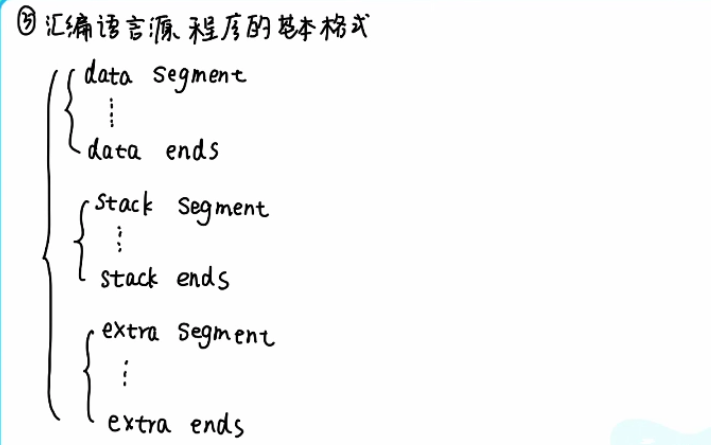 ③ 汇编语言源程序的基本格式
data segment
data ends
stack segment
stack ends
extra segment
extra ends